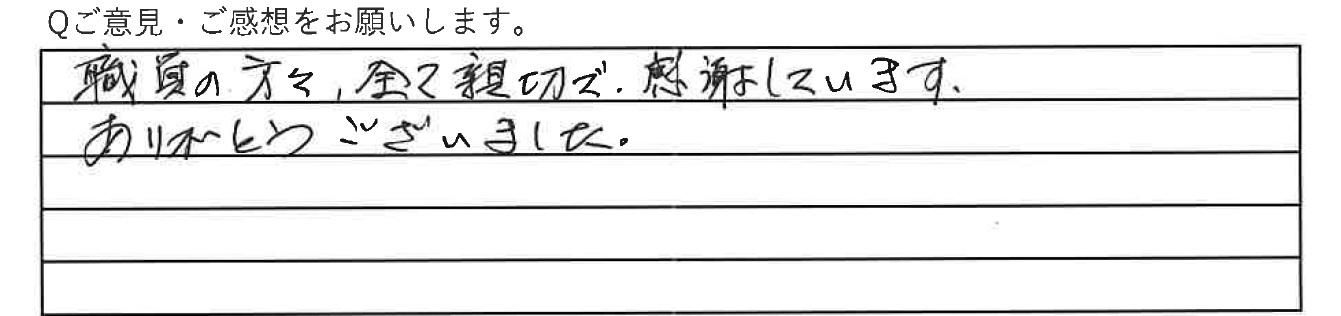 Qご意見・ご感想をお願いします。
職員の方々、全て親切で、感謝しています。
ありがとうございました。